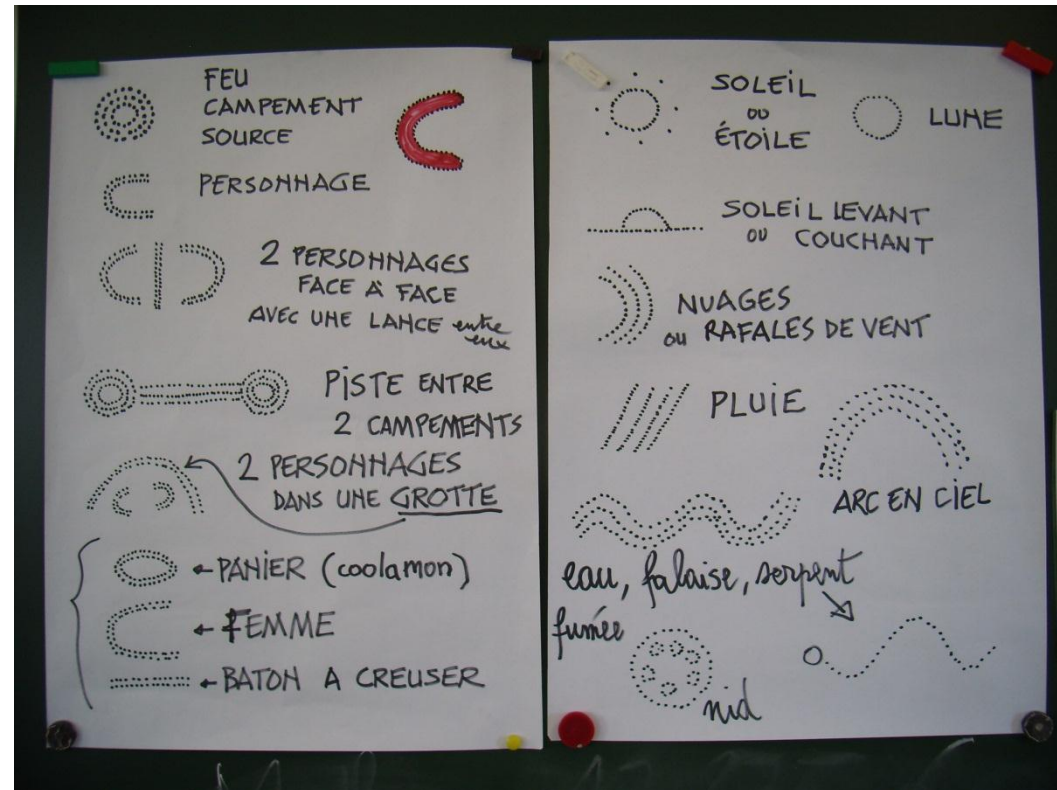 FEU
CAMPEMENT
SOURCE
PERSONNAGE
2 PERSONNAGES
FACE À FACE
AVEC UNE LANCE entre
eux
PISTE ENTRE
2 CAMPEMENTS
2 PERSONNAGES
DANS UNE GROTTE
PANIER (coolamon)
FEMME
BATON A CREUSER
SOLEIL
OU
ÉTOILE
LUNE
SOLEIL LEVANT
OU COUCHANT
NUAGES
ou RAFALES DE VENT
PLUIE
ARC EN CIEL
eau, falaise, serpent
fumée
nid